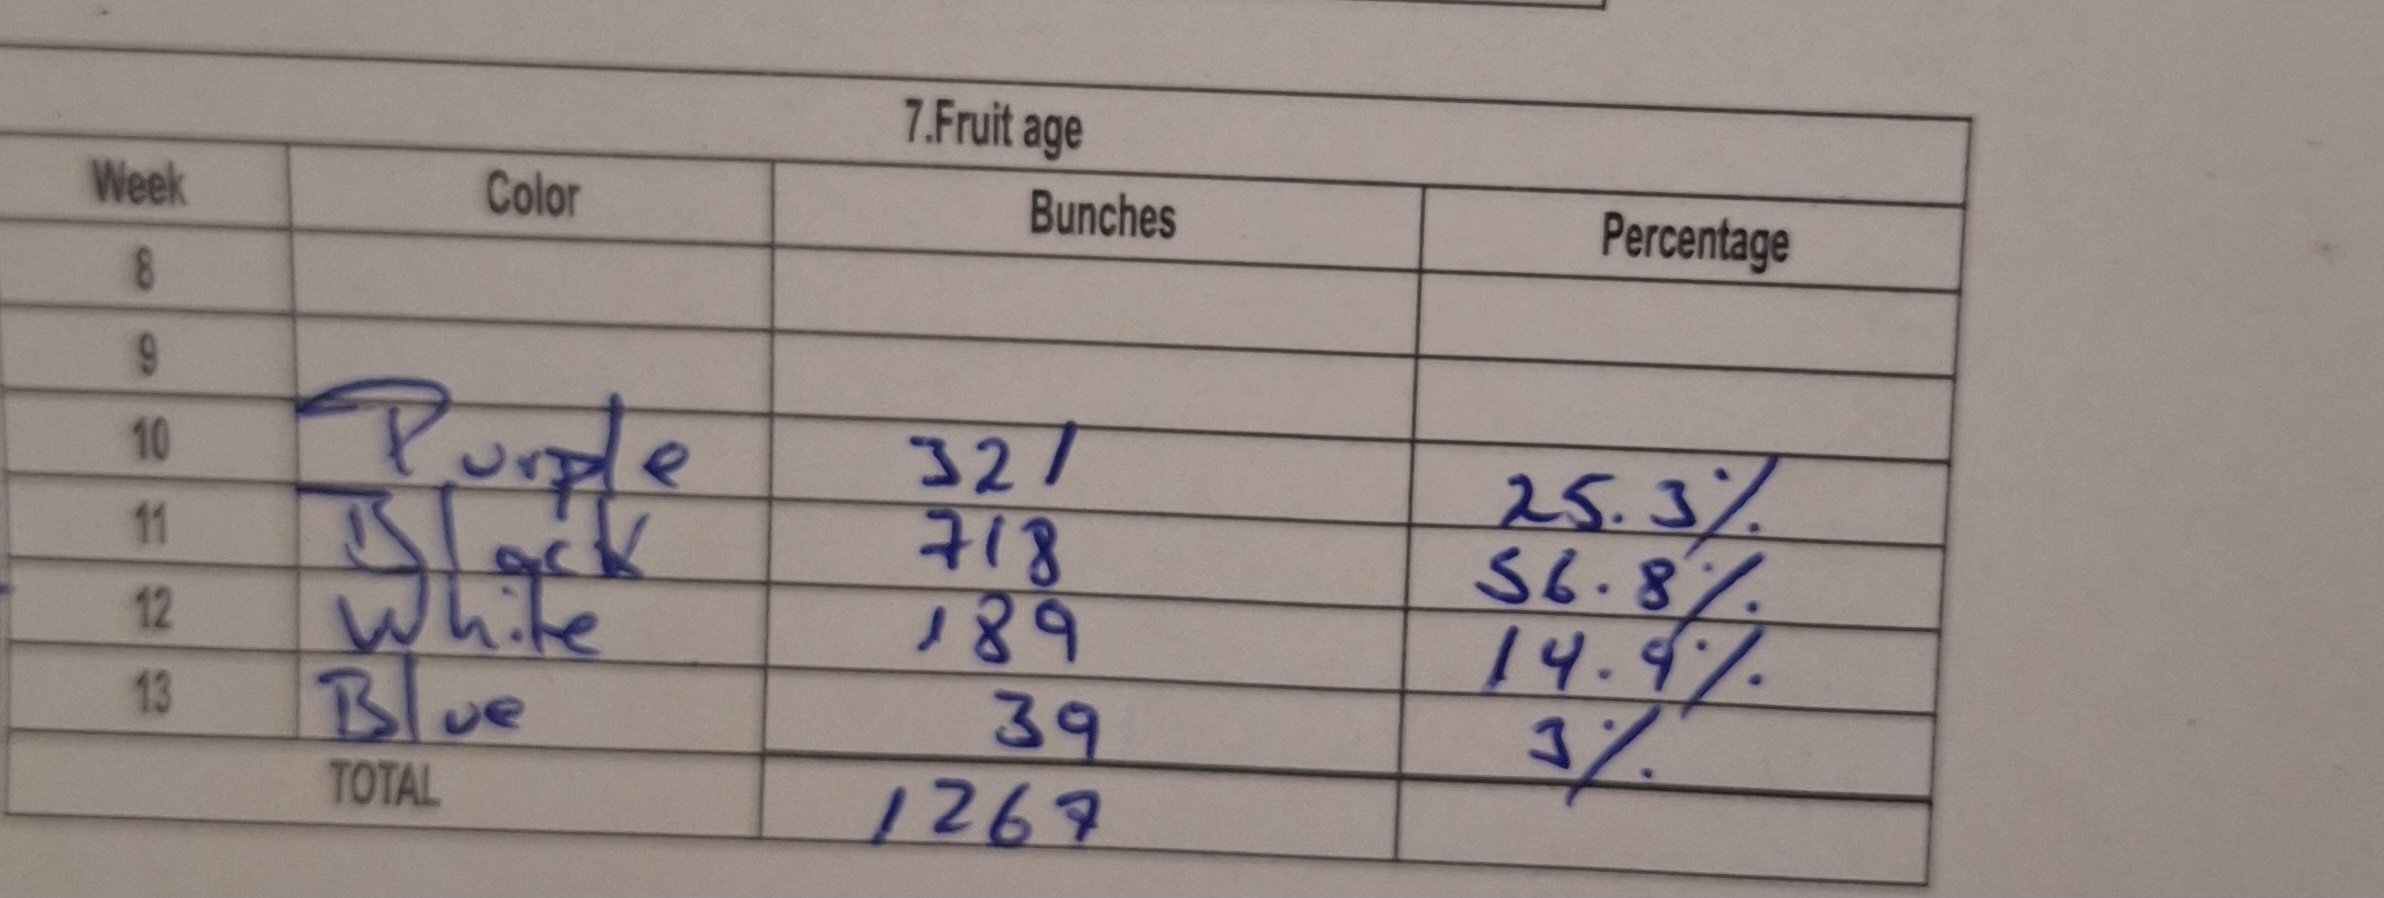 7.Fruit age
Week Color Bunches Percentage
8
9
10 Purple 321 25.3%
11 Black 718 56.8%
12 White 189 14.9%
13 Blue 39 3%
TOTAL 1267